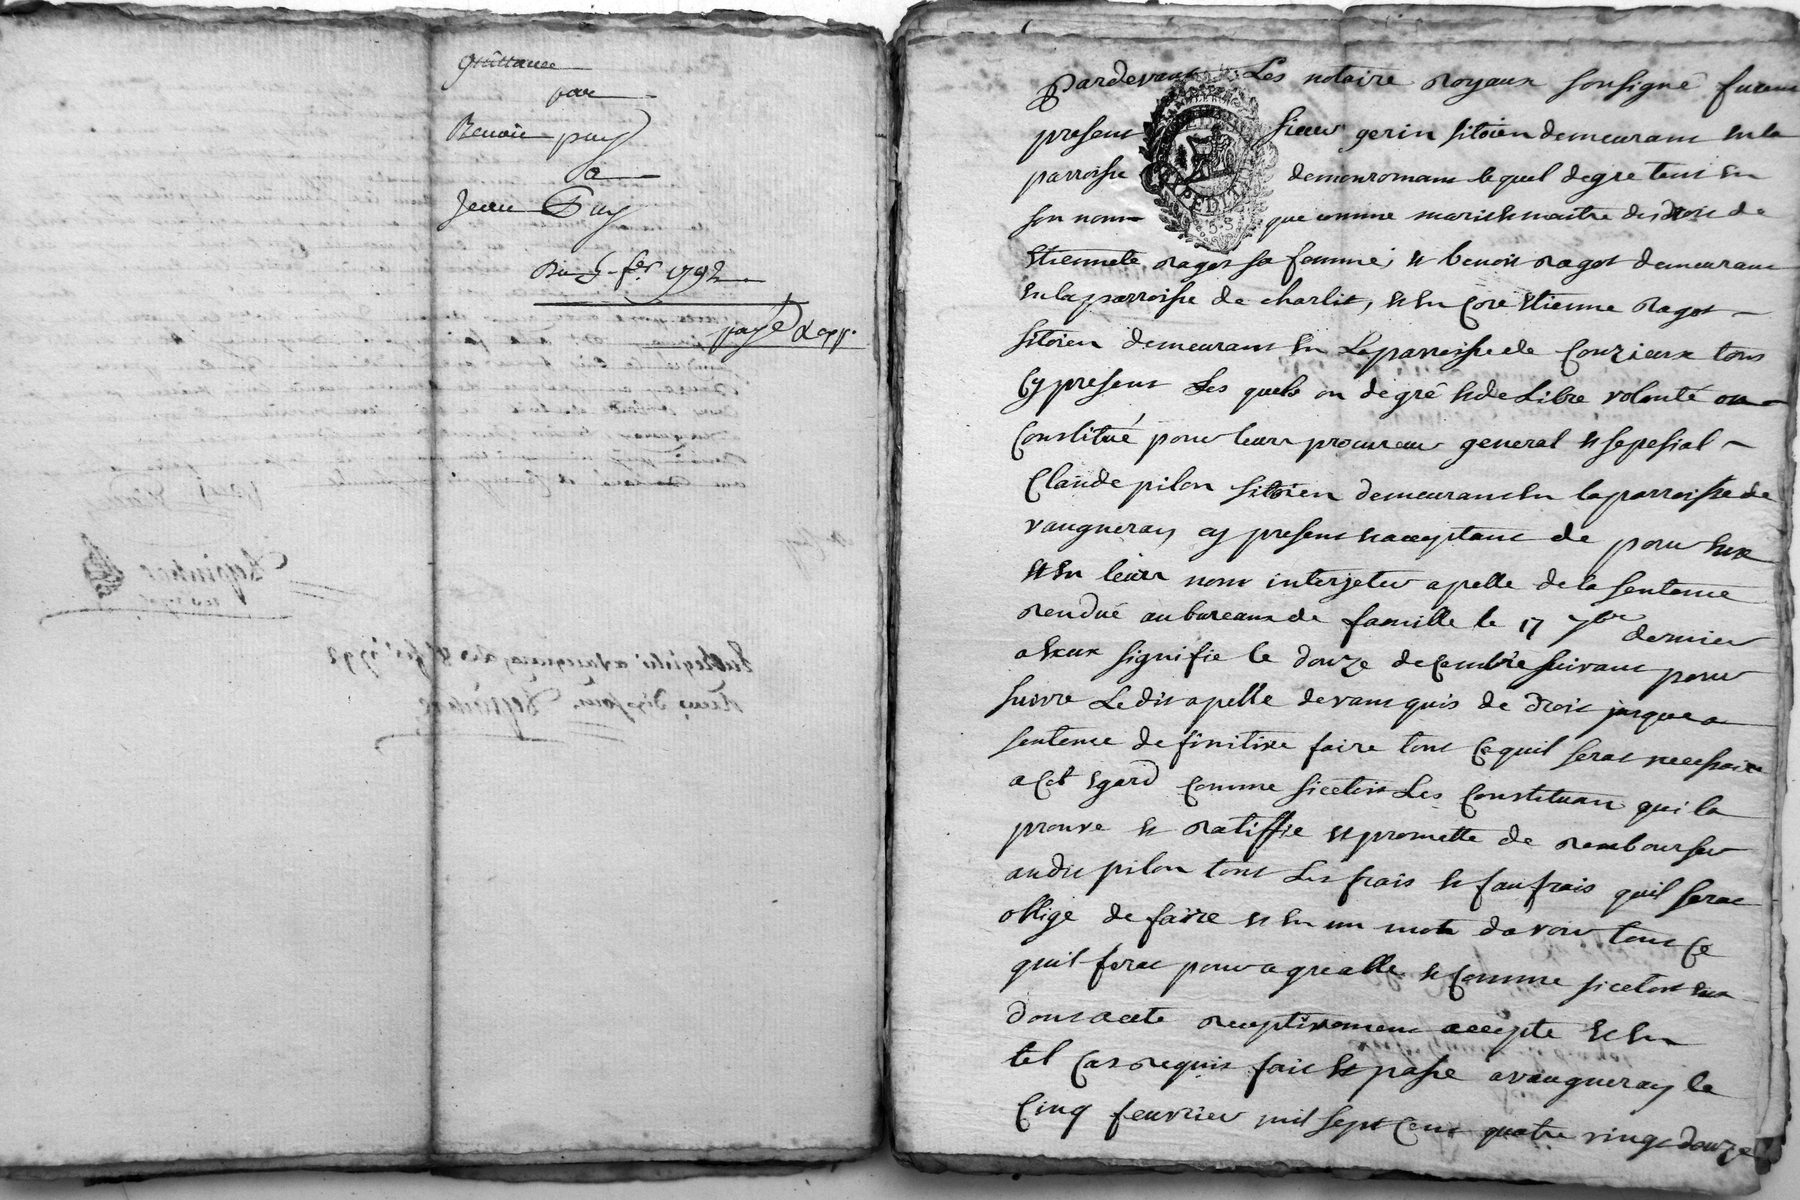 Quittance
par
Benoit puy
a
Jean Puy
Du 5 fer 1792
payé
Pardevant Les notaire Royaux soussigné furent
present sieur gerin sitoien demeurant en la
parroisse demonromant lequel degre tant en
son nom que comme maris et maitre des droit de
Etiennete ragot sa femme, et benoit ragot demeurant
en la parroisse de charlit, et en Core Etienne Ragot
sitoien demeurant en La parroisse de Courzieux tous
Cy present Les quels on de gré et de Libre volonté on
Constitué pour leurs procureur general et sepesial
Claude pilon sitoien demeurant en la parroisse de
vaugneray cy present et acceptant de pour Eux
et En leurs nom interjeter apelle de la sentence
rendué au bureaux de famille le 17 7bre dernier
a Eux signifie le douze decembre suivant pour
suivre Le dit apelle devant quis de droit jusque a
sentence definitive faire tout Ce quil serat necessaire
a Cet Egard Comme si cetoit Les Constituant qui la
prouve et ratiffie et promette de rembourser
audit pilon tout Les frais et faufrais quil serat
oblige de faire et En un mots davoir tout Ce
quil ferat pour agreable et Comme si cetoit Eux
dont acte receptivement accepte et En
tel Cas requis fait et passé a vaugneray le
Cinq feuvrier mil sept Cent quatre vingt douze